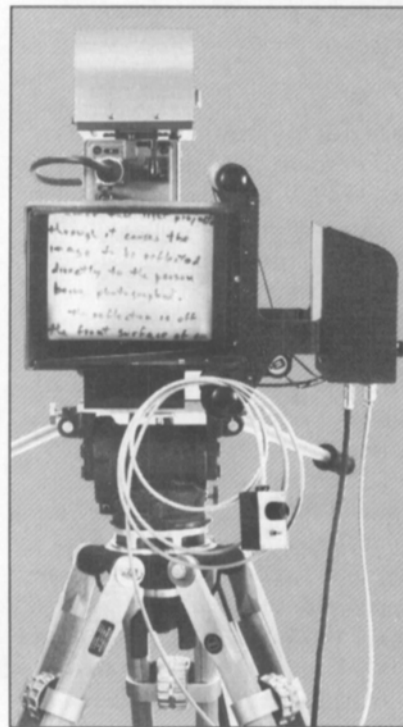 through it causes the
image to be reflected
directly to the person
being photographed.
The reflection is off
the front surface of